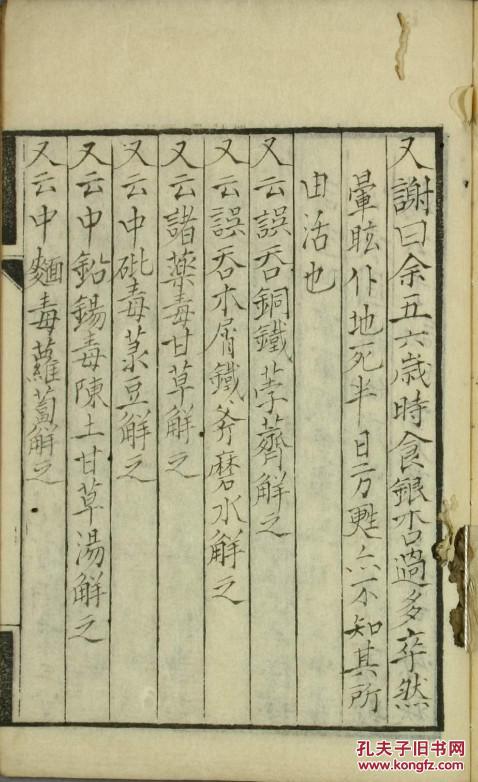 又謝曰余五六歳時食銀杏過多卒然
暈眩仆地死半日方甦亦不知其所
由活也
又云誤吞銅鐵荸薺解之
又云誤吞木屑鐵斧磨水解之
又云諸藥毒甘草解之
又云中砒毒菉豆解之
又云中鉛錫毒陳土甘草湯解之
又云中麵毒蘿蔔解之
孔夫子旧书网
www.kongfz.com